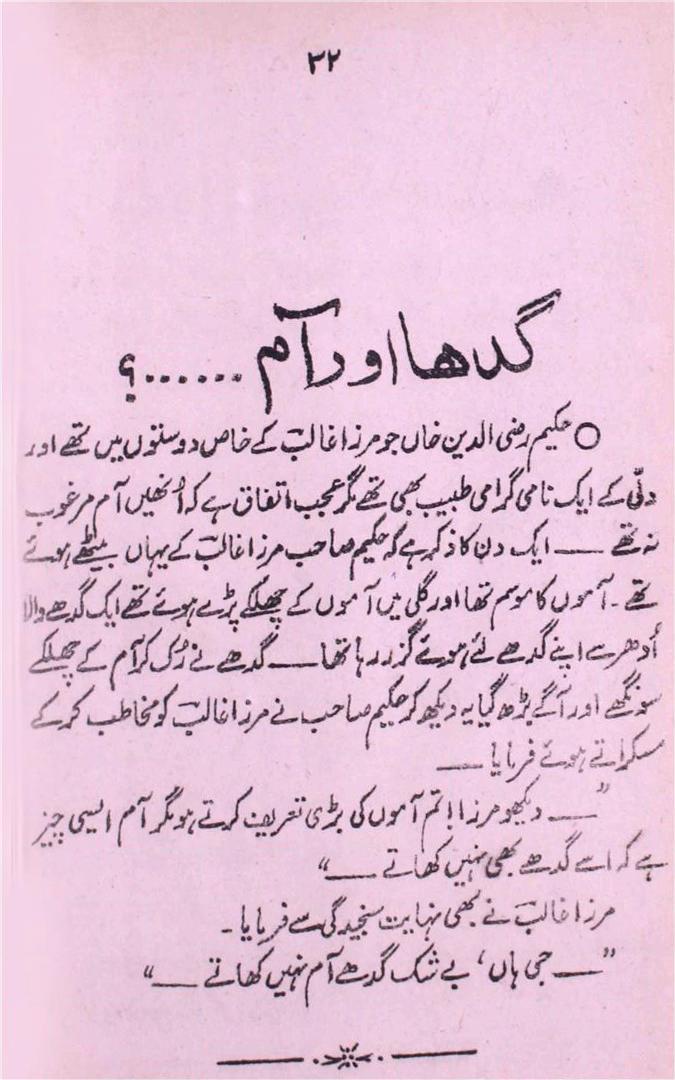 ۳۲
گدھا اور آم ......؟
○ حکیم رضی الدین خاں جو مرزا غالبؔ کے خاص دوستوں میں تھے اور
دلّی کے ایک نامی گرامی طبیب بھی تھے مگر عجب اتفاق ہے کہ اُنھیں آم مرغوب
نہ تھے ـــــ ایک دن کا ذکر ہے کہ حکیم صاحب مرزا غالبؔ کے یہاں بیٹھے ہوئے
تھے۔ آموں کا موسم تھا اور گلی میں آموں کے چھلکے پڑے ہوئے تھے ایک گدھے والا
اُدھر سے اپنے گدھے لئے ہوئے گزر رہا تھا ـــــ گدھے نے رُک کر آم کے چھلکے
سونگھے اور آگے بڑھ گیا یہ دیکھ کر حکیم صاحب نے مرزا غالبؔ کو مخاطب کر کے
مسکراتے ہوئے فرمایا ـــــ
”ـــــ دیکھو مرزا! تم آموں کی بڑی تعریف کرتے ہو مگر آم ایسی چیز
ہے کہ اسے گدھے بھی نہیں کھاتے ـــــ“
مرزا غالبؔ نے بھی نہایت سنجیدگی سے فرمایا۔
”ـــــ جی ہاں، بے شک گدھے آم نہیں کھاتے ـــــ“